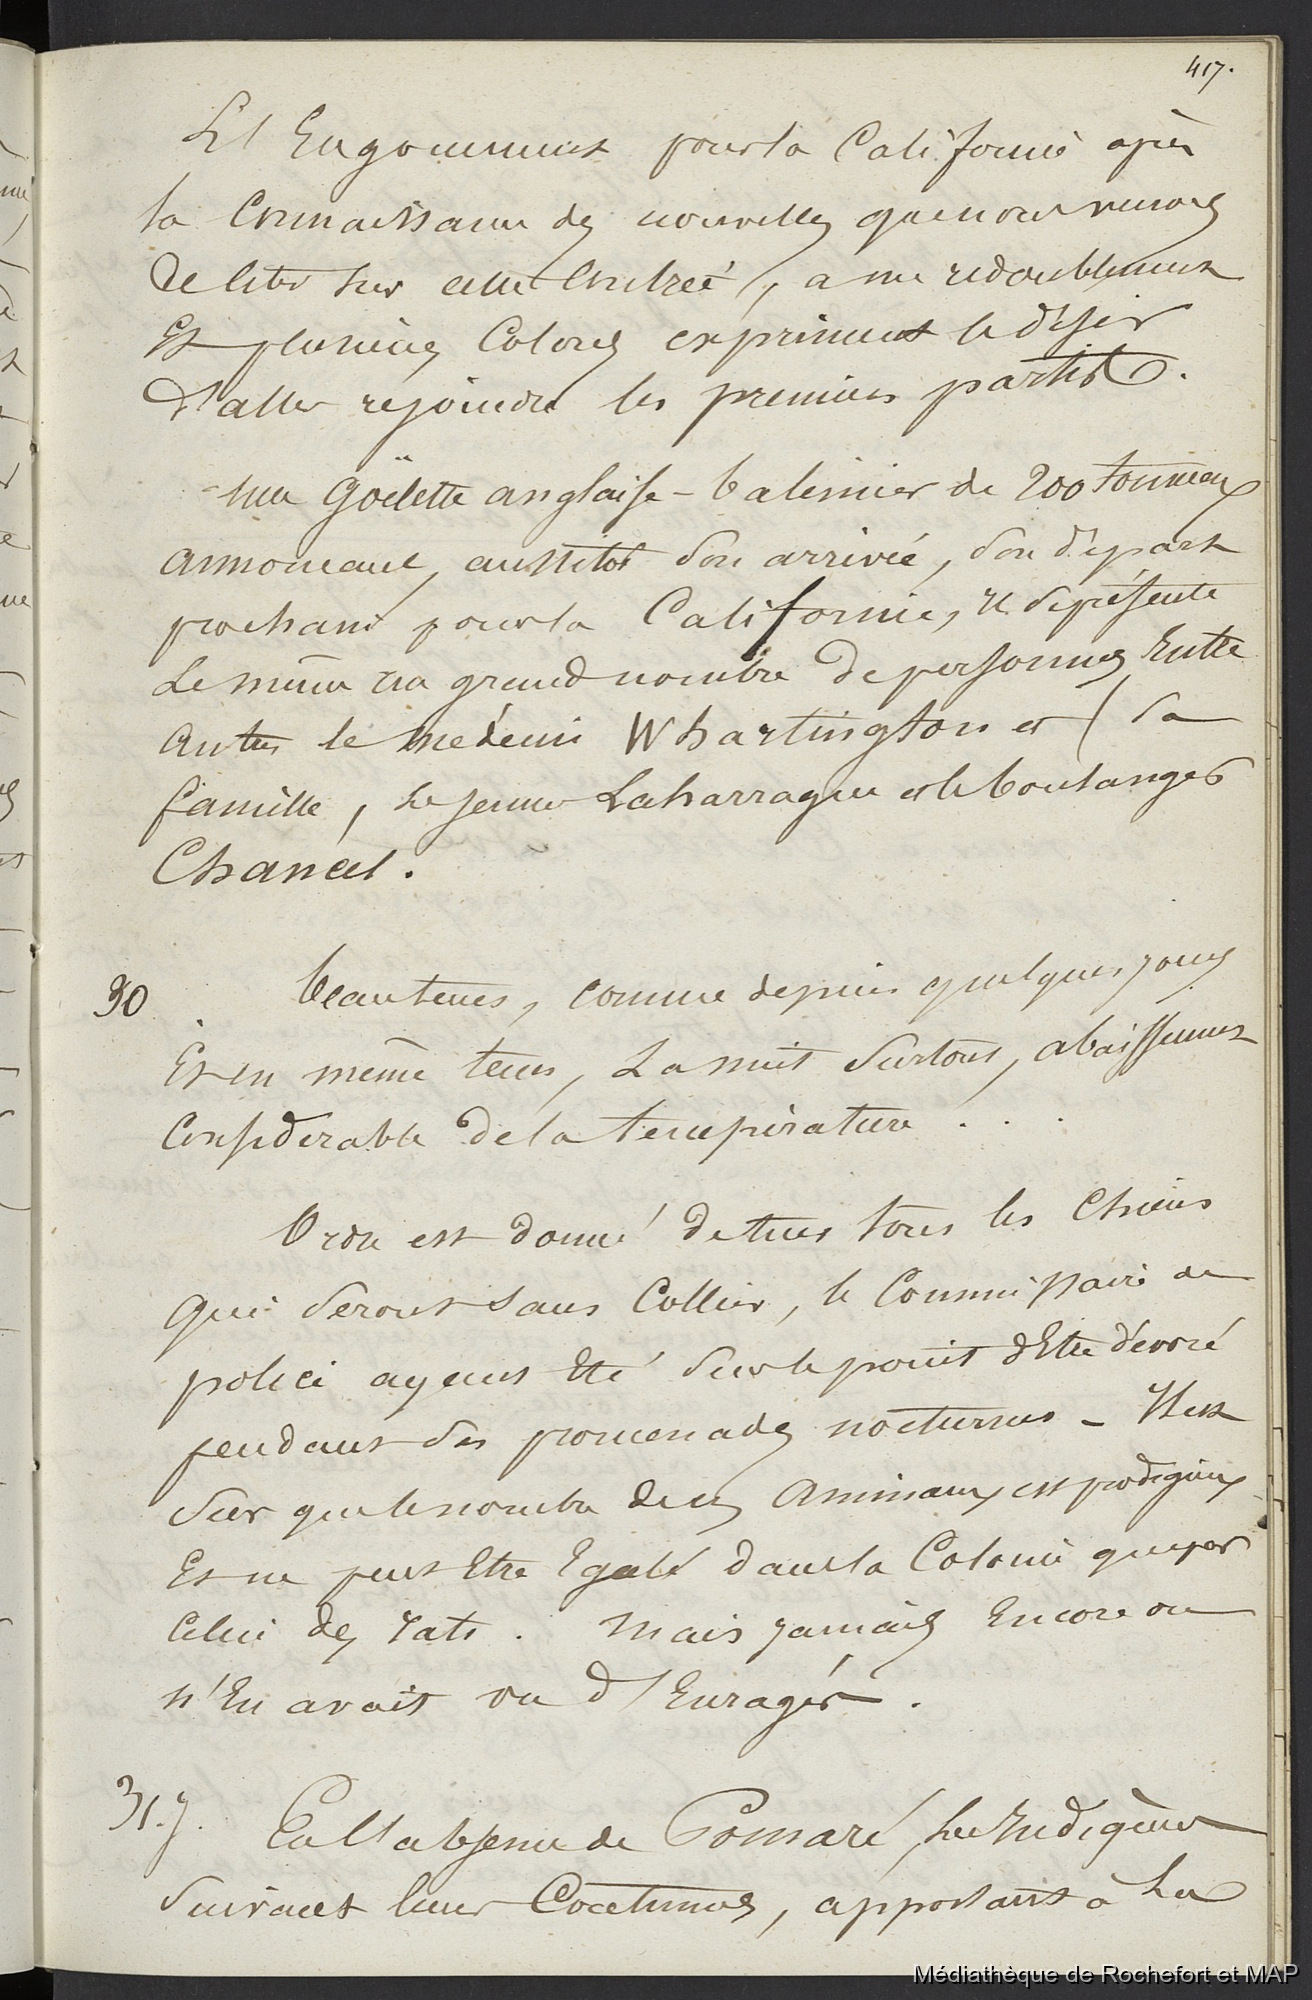 417.
L'Engouement pour la Californie après
la Connaissance des nouvelles que nous venons
de citer sur cette Contrée, a un redoublement
Et plusieurs Colons expriment le désir
d'aller rejoindre les premiers partis.
une Goëlette anglaise - baleinier de 200 tonneaux
annoncant, aussitot son arrivée, son départ
prochain pour la Californie, il se présente
de même un grand nombre de personnes Entre
autres le médecin Whartington et sa
famille, le jeune Laharrague et le boulanger
Chancel.
30 beau tems, comme depuis quelques jours
Et en même tems, La nuit surtout, abaissement
Considerable de la température . . .
Ordre est donné de tuer tous les Chiens
qui seront sans Collier, le Commissaire de
police ayant Eté sur le point d'Etre dévoré
pendant ses promenades nocturnes - Il est
sur que le nombre de ces Animaux est prodigieux
Et ne peut Etre Egalé dans la Colonie que par
Celui des rats. Mais jamais Encore on
n'En avait vu d'Enragés.
31. j. En l'absence de Pomaré, les Indigènes
suivant leur Coutume, apportent à La
Médiathèque de Rochefort et MAP